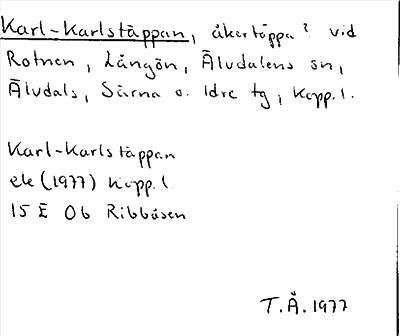 Karl-Karlstäppan, åkertäppa? vid
Rotnen, Långön, Älvdalens sn,
Älvdals, Särna o. Idre tg, Kopp. l.
Karl-Karlstäppan
ek (1977) Kopp. l
15 E 0b Ribbåsen
T.Å. 1977